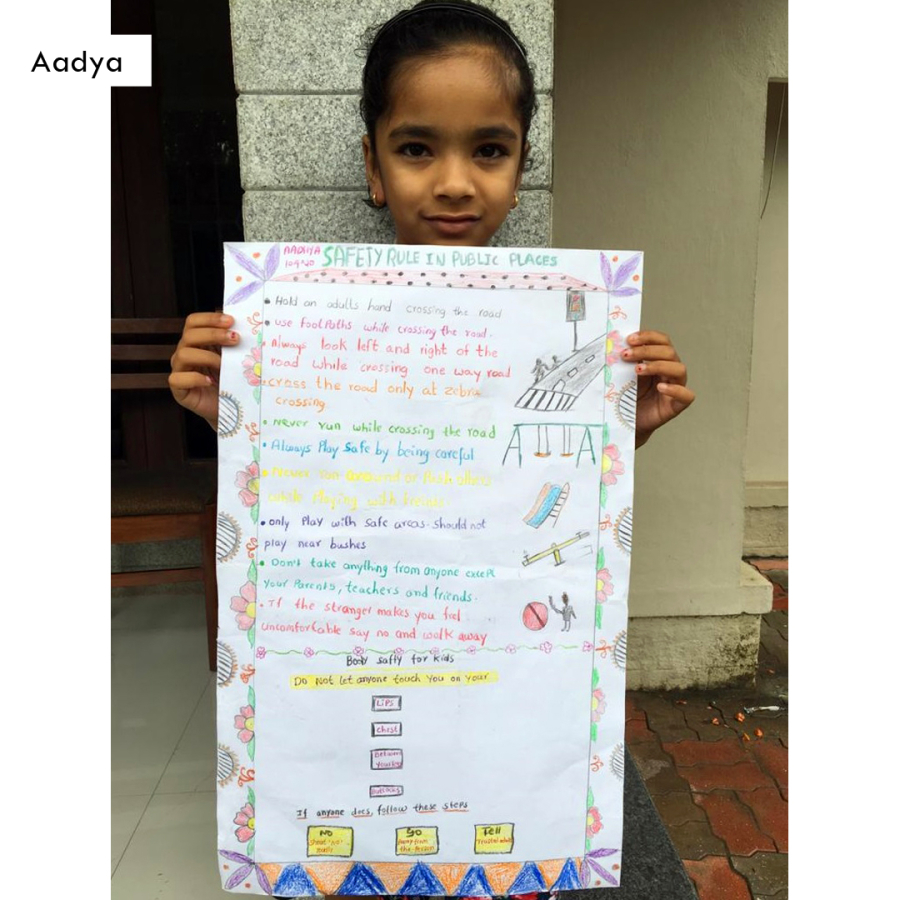 Aadya
AADHYA
SAFETY RULE IN PUBLIC PLACES
Hold an adults hand crossing the road
use footpaths while crossing the road.
Always look left and right of the
road while crossing one way road
cross the road only at zebra
crossing
Never run while crossing the road
Always Play Safe by being careful
Never run around or Push others
while Playing with
only Play with safe areas. should not
play near bushes
Don't take anything from anyone except
your Parents, teachers and friends.
If the stranger makes you feel
uncomfortable say no and walk away
Body safty for kids
Do Not let anyone touch you on your
LIPS
chest
Between
your leg
If anyone does, follow these steps
NO
GO
Tell
Away from
the person